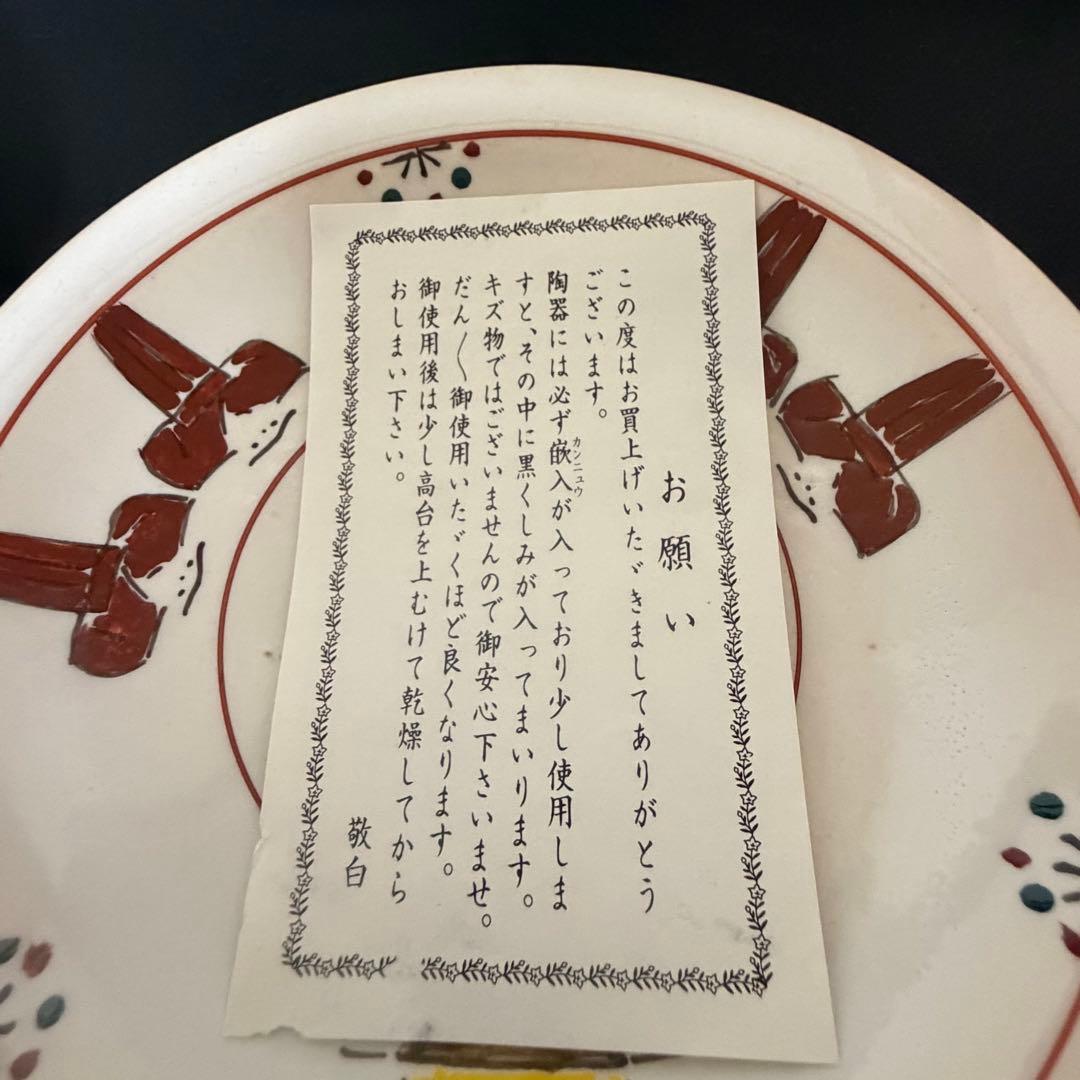 お願い
この度はお買上げいたゞきましてありがとう
ございます。
陶器には必ず嵌入が入っており少し使用しま
カンニュウ
すと、その中に黒くしみが入ってまいります。
キズ物ではございませんので御安心下さいませ。
だん〱御使用いたゞくほど良くなります。
御使用後は少し高台を上むけて乾燥してから
おしまい下さい。
敬白